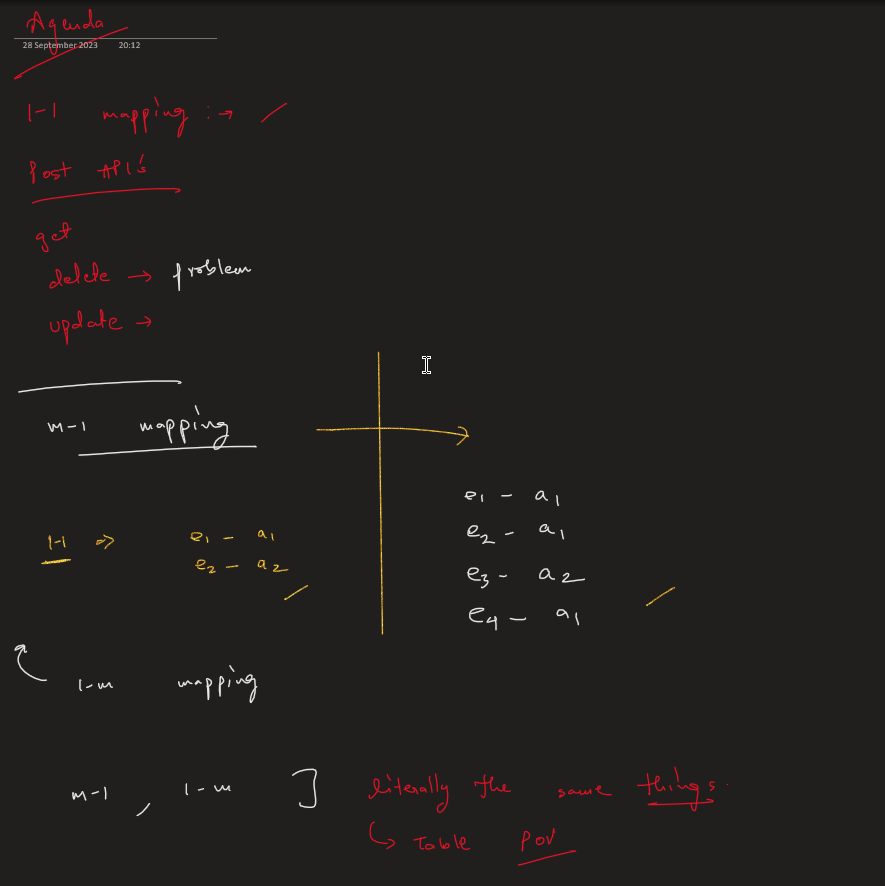 Agenda
28 September 2023 20:12
1-1 mapping :→
Post API's
get
delete → problem
update →
m-1 mapping
1-1 ⇒ e1 - a1
e2 - a2
e1 - a1
e2 - a1
e3 - a2
e4 - a1
1-m mapping
m-1 , 1-m ] literally the same things.
↳ Table POV